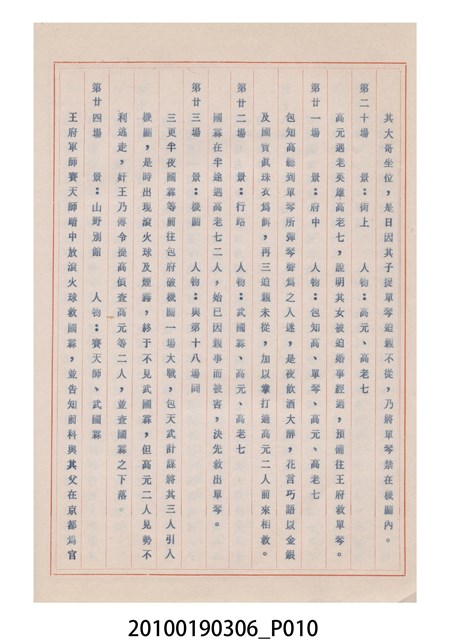 其大哥坐位,是日因其子捉單琴迫親不從,乃將單琴禁在機關內。
第二十場 景:街上 人物:高元、高老七
高元遇老英雄高老七,說明其女被迫婚事經過,預備往王府救單琴。
第廿一場 景:府中 人物:包知高、單琴、高元、高老七
包知高聽到單琴所彈琴聲為之入迷,是夜飲酒大醉,花言巧語以金銀
及國寶真珠衣為餌,再三迫親未從,加以拳打過高元二人前來相救。
第廿二場 景:行路 人物:武國霖、高元、高老七
國霖在半途遇高老七二人,始已因親事而被害,決先救出單琴。
第廿三場 景:機關 人物:與第十八場同
三更半夜國霖等前往包府破機關一場大戰,包天武計謀將其三人引入
機關,是時出現滾火球及煙霧,終于不見武國霖,但高元二人見勢不
利逃走,奸王乃傳令提高偵查高元等二人,並查國霖之下落。
第廿四場 景:山野別館 人物:賽天師、武國霖
王府軍師賽天師暗中放滾火球救國霖,並告知前科與其父在京都為官
20100190306_P010